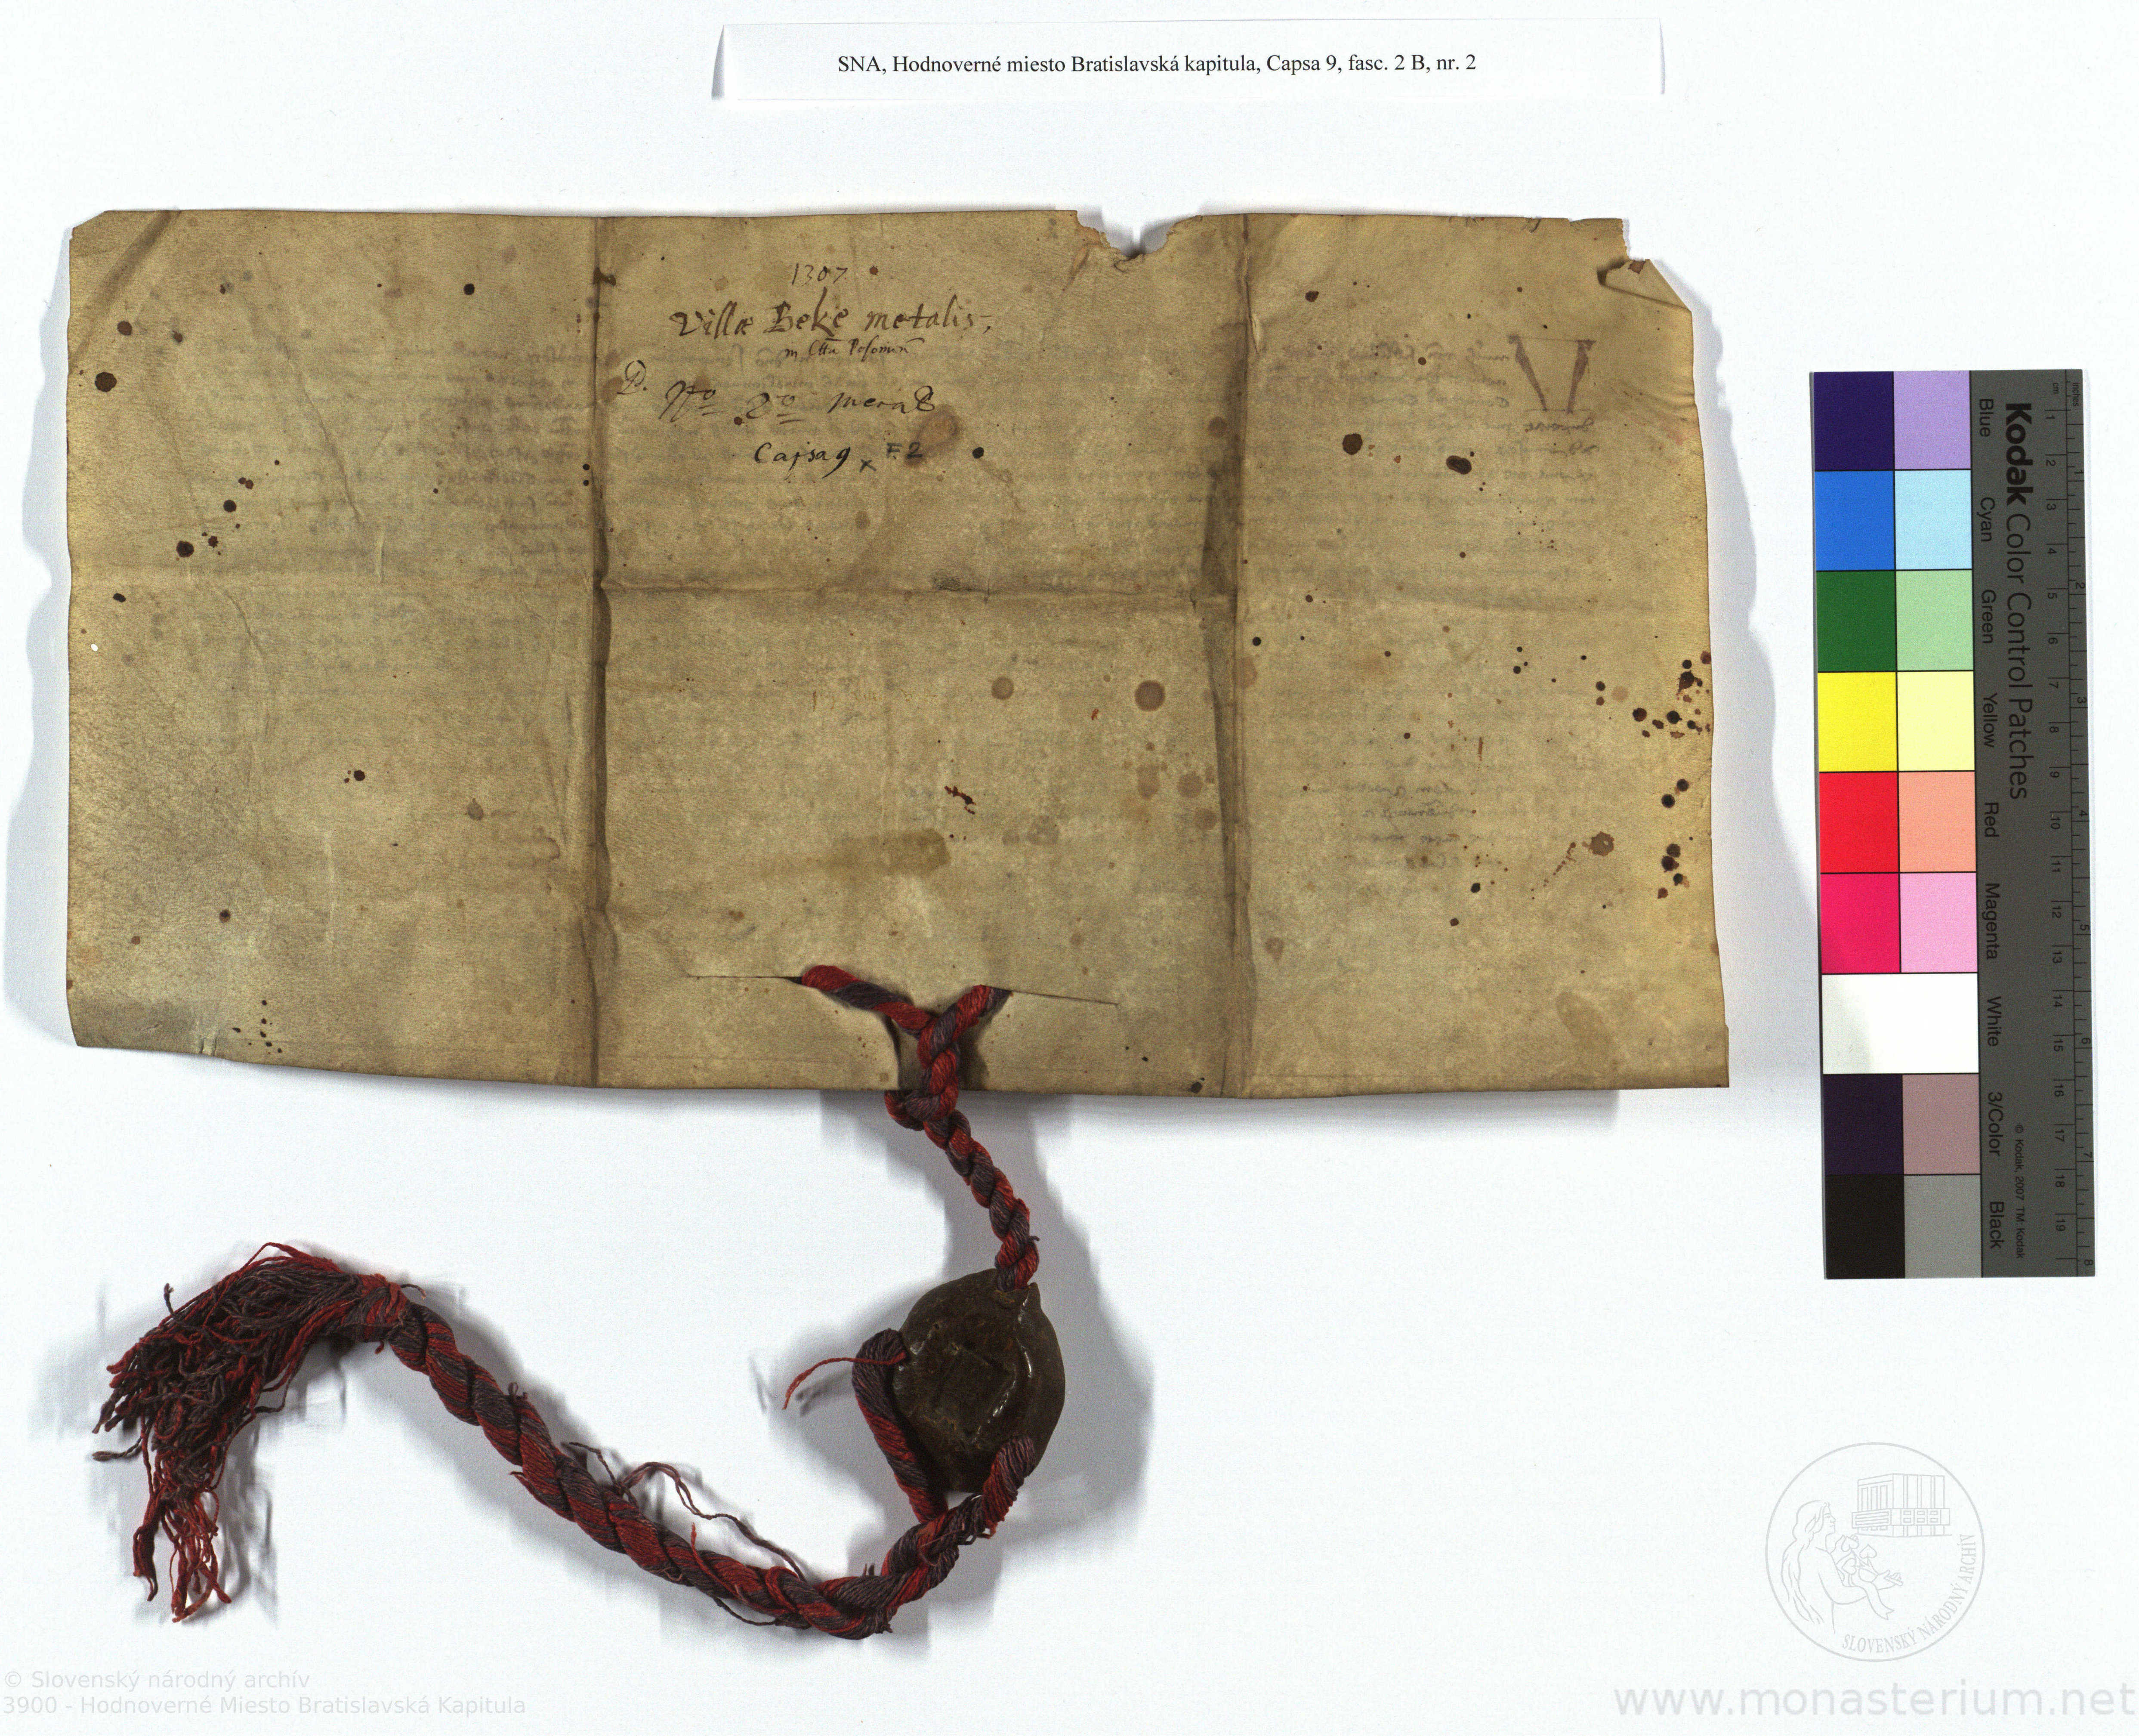 SNA, Hodnoverné miesto Bratislavská kapitula, Capsa 9, fasc. 2 B, nr. 2
1307
Villæ Beke metalis,
in Cttu Posonien
D. Nº 2º mera B
Capsa 9 x F. 2
V
Kodak Color Control Patches
Blue Cyan Green Yellow Red Magenta White 3/Color Black
© Kodak, 2007 TM: Kodak
cm 1 2 3 4 5 6 7 8 9 10 11 12 13 14 15 16 17 18 19
inches 1 2 3 4 5 6 7 8
SLOVENSKÝ NÁRODNÝ ARCHÍV
© Slovenský národný archív
3900 - Hodnoverné Miesto Bratislavská Kapitula
www.monasterium.net